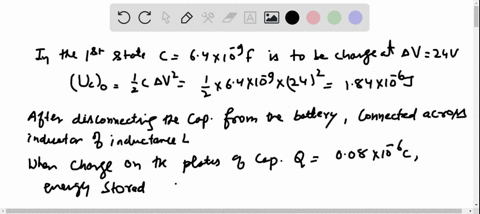 In the 1st state C = 6.4×10⁻⁹f is to be charge at ΔV = 24V
(Uc)₀ = ½ C ΔV² = ½ × 6.4×10⁹ × (24)² = 1.84×10⁻⁶J
After disconnecting the Cap. from the battery, Connected across
inductor of inductance L
When charge on the plates of Cap. Q = 0.08 ×10⁻⁶C,
energy stored